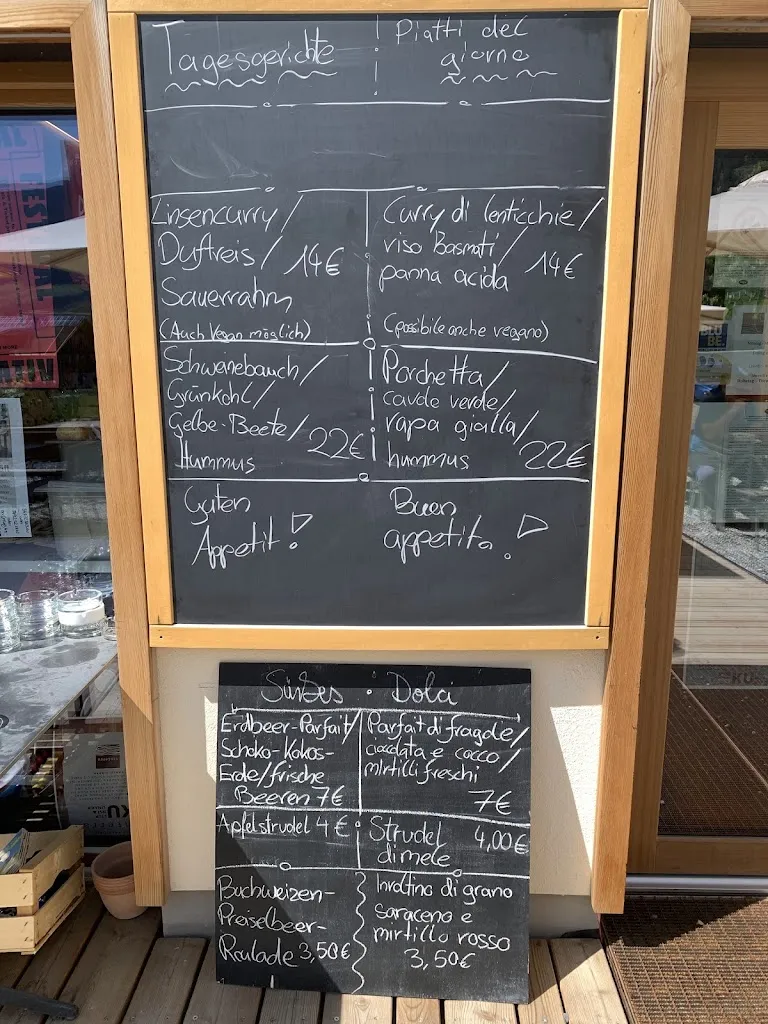 Tagesgerichte
Piatti del
giorno
Linsencurry/
Duftreis/ 14€
Sauerrahm
(Auch Vegan möglich)
Curry di lenticchie/
riso Basmati/
panna acida 14€
(possibile anche vegano)
Schweinebauch/
Grünkohl/
Gelbe-Beete/
Hummus 22€
Porchetta/
cavolo verde/
rapa gialla/
hummus 22€
Guten
Appetit!
Buon
appetito!
Süßes · Dolci
Erdbeer-Parfait/
Schoko-Kokos-
Erde/frische
Beeren 7€
Parfait di fragole/
cioccolata e cocco/
mirtilli freschi
7€
Apfelstrudel 4€
Strudel 4,00€
di mele
Buchweizen-
Preiselbeer-
Roulade 3,50€
Involtino di grano
saraceno e
mirtillo rosso
3,50€